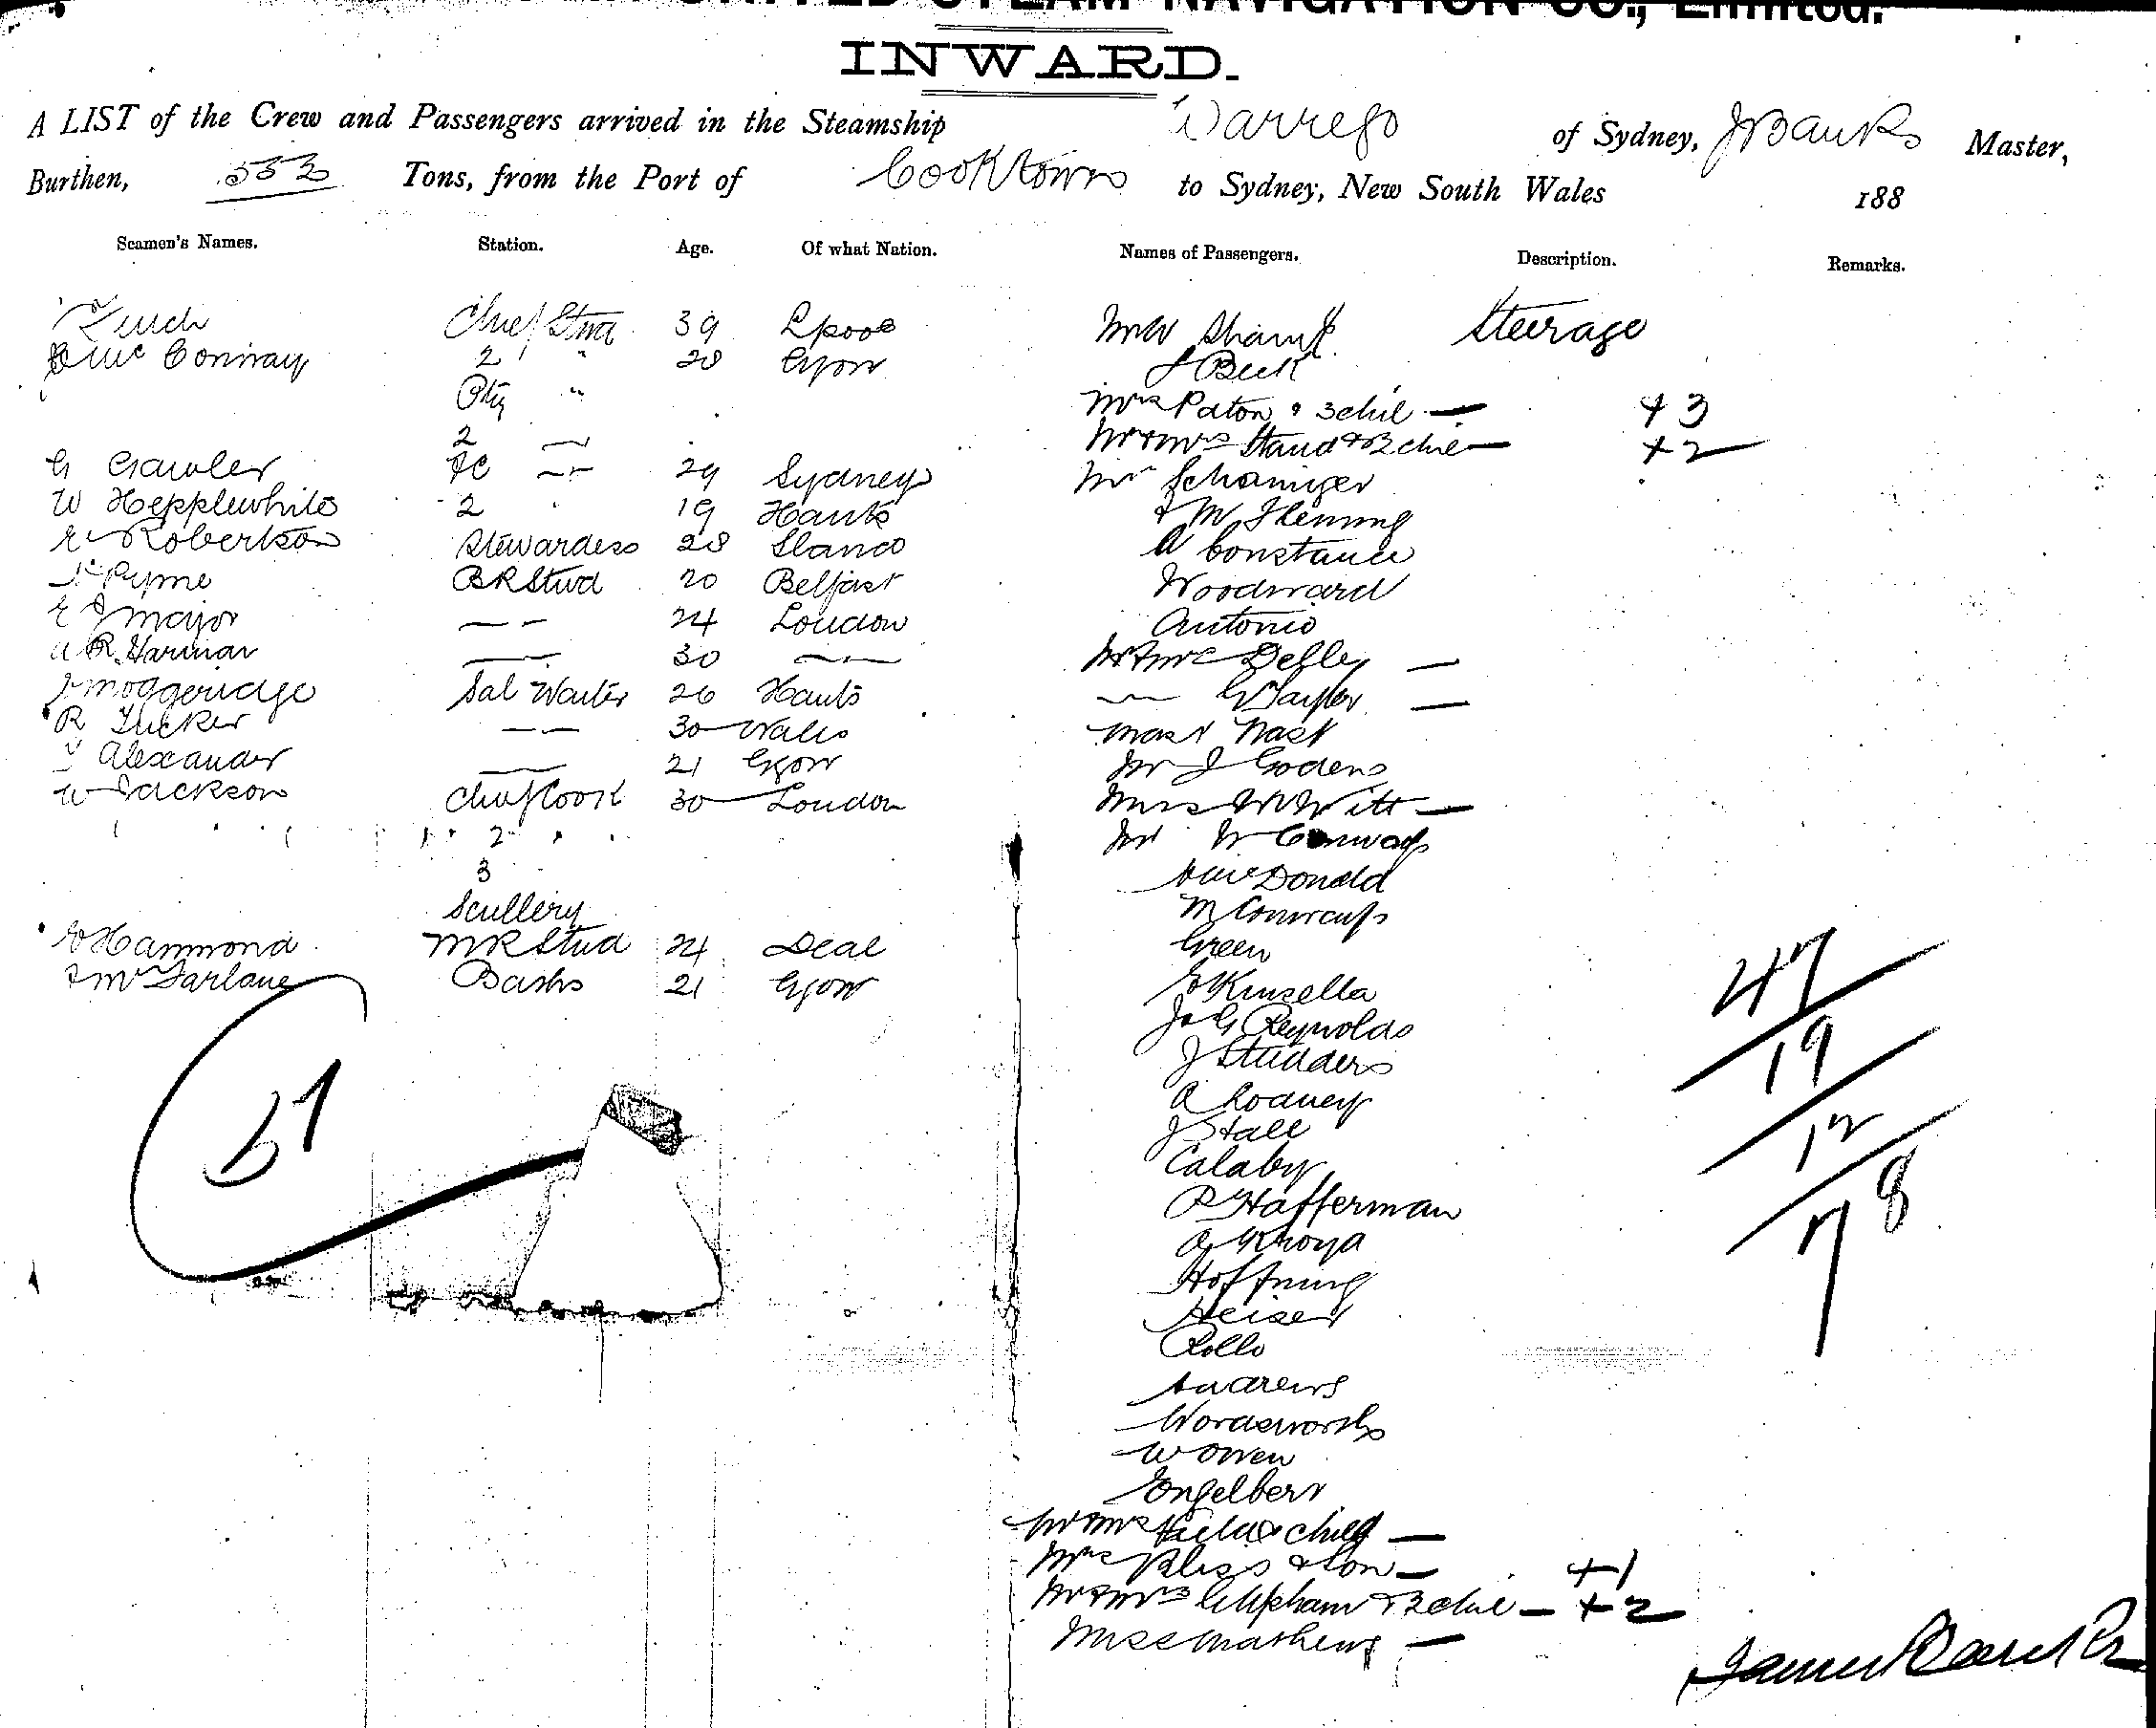 UNITED STEAM NAVIGATION CO., Limited.
INWARD.
A LIST of the Crew and Passengers arrived in the Steamship Warrego of Sydney, J Banks Master,
Burthen, 533 Tons, from the Port of Cooktown to Sydney, New South Wales 188
Seamen's Names. Station. Age. Of what Nation. Names of Passengers. Description. Remarks.
Chief Stwd 39 Lpool
Mc Conway 2 " 28 Glgow
Ptry "
2
G Gawler FC 29 Sydney
W Hepplewhite 2 19 Hants
E Robertson Stewardess 28
Pyme BR Stwd 20 Belfast
E J Major 24 London
A R Harman 30
J Moggeridge Sal Waiter 26 Hants
R Tucker 30 Wales
Alexander 21 Glgow
W Jackson Chief Cook 30 London
2
3
Scullery
E Hammond MR Stwd 24 Deal
J McFarlane Barks 21 Glgow
51
Mr W Steerage
J Beck
Mrs Paton & 3 chil — +3
Mr & Mrs Stand & 2 chil — +2
Mr Schaniger
J M Fleming
A Constance
Woodward
Antonio
Mr & Mrs —
G Taylor —
Mast Nast
Mr J Godens
Mrs W Witt —
Mr W Conway
McDonald
M Conway
Green
E Kinsella
J G Reynolds
J Studders
A Rodney
J Stall
Calaby
P Hafferman
A Khoya
Hoffnung
Heiser
Rollo
Andrews
Wordsworth
W Owen
Engelbert
Mr & Mrs & child —
Mrs Bliss & Son — +1
Mr & Mrs Clipham & 2 chil — +2
Miss Mathews —
47
19
12
78
James Banks